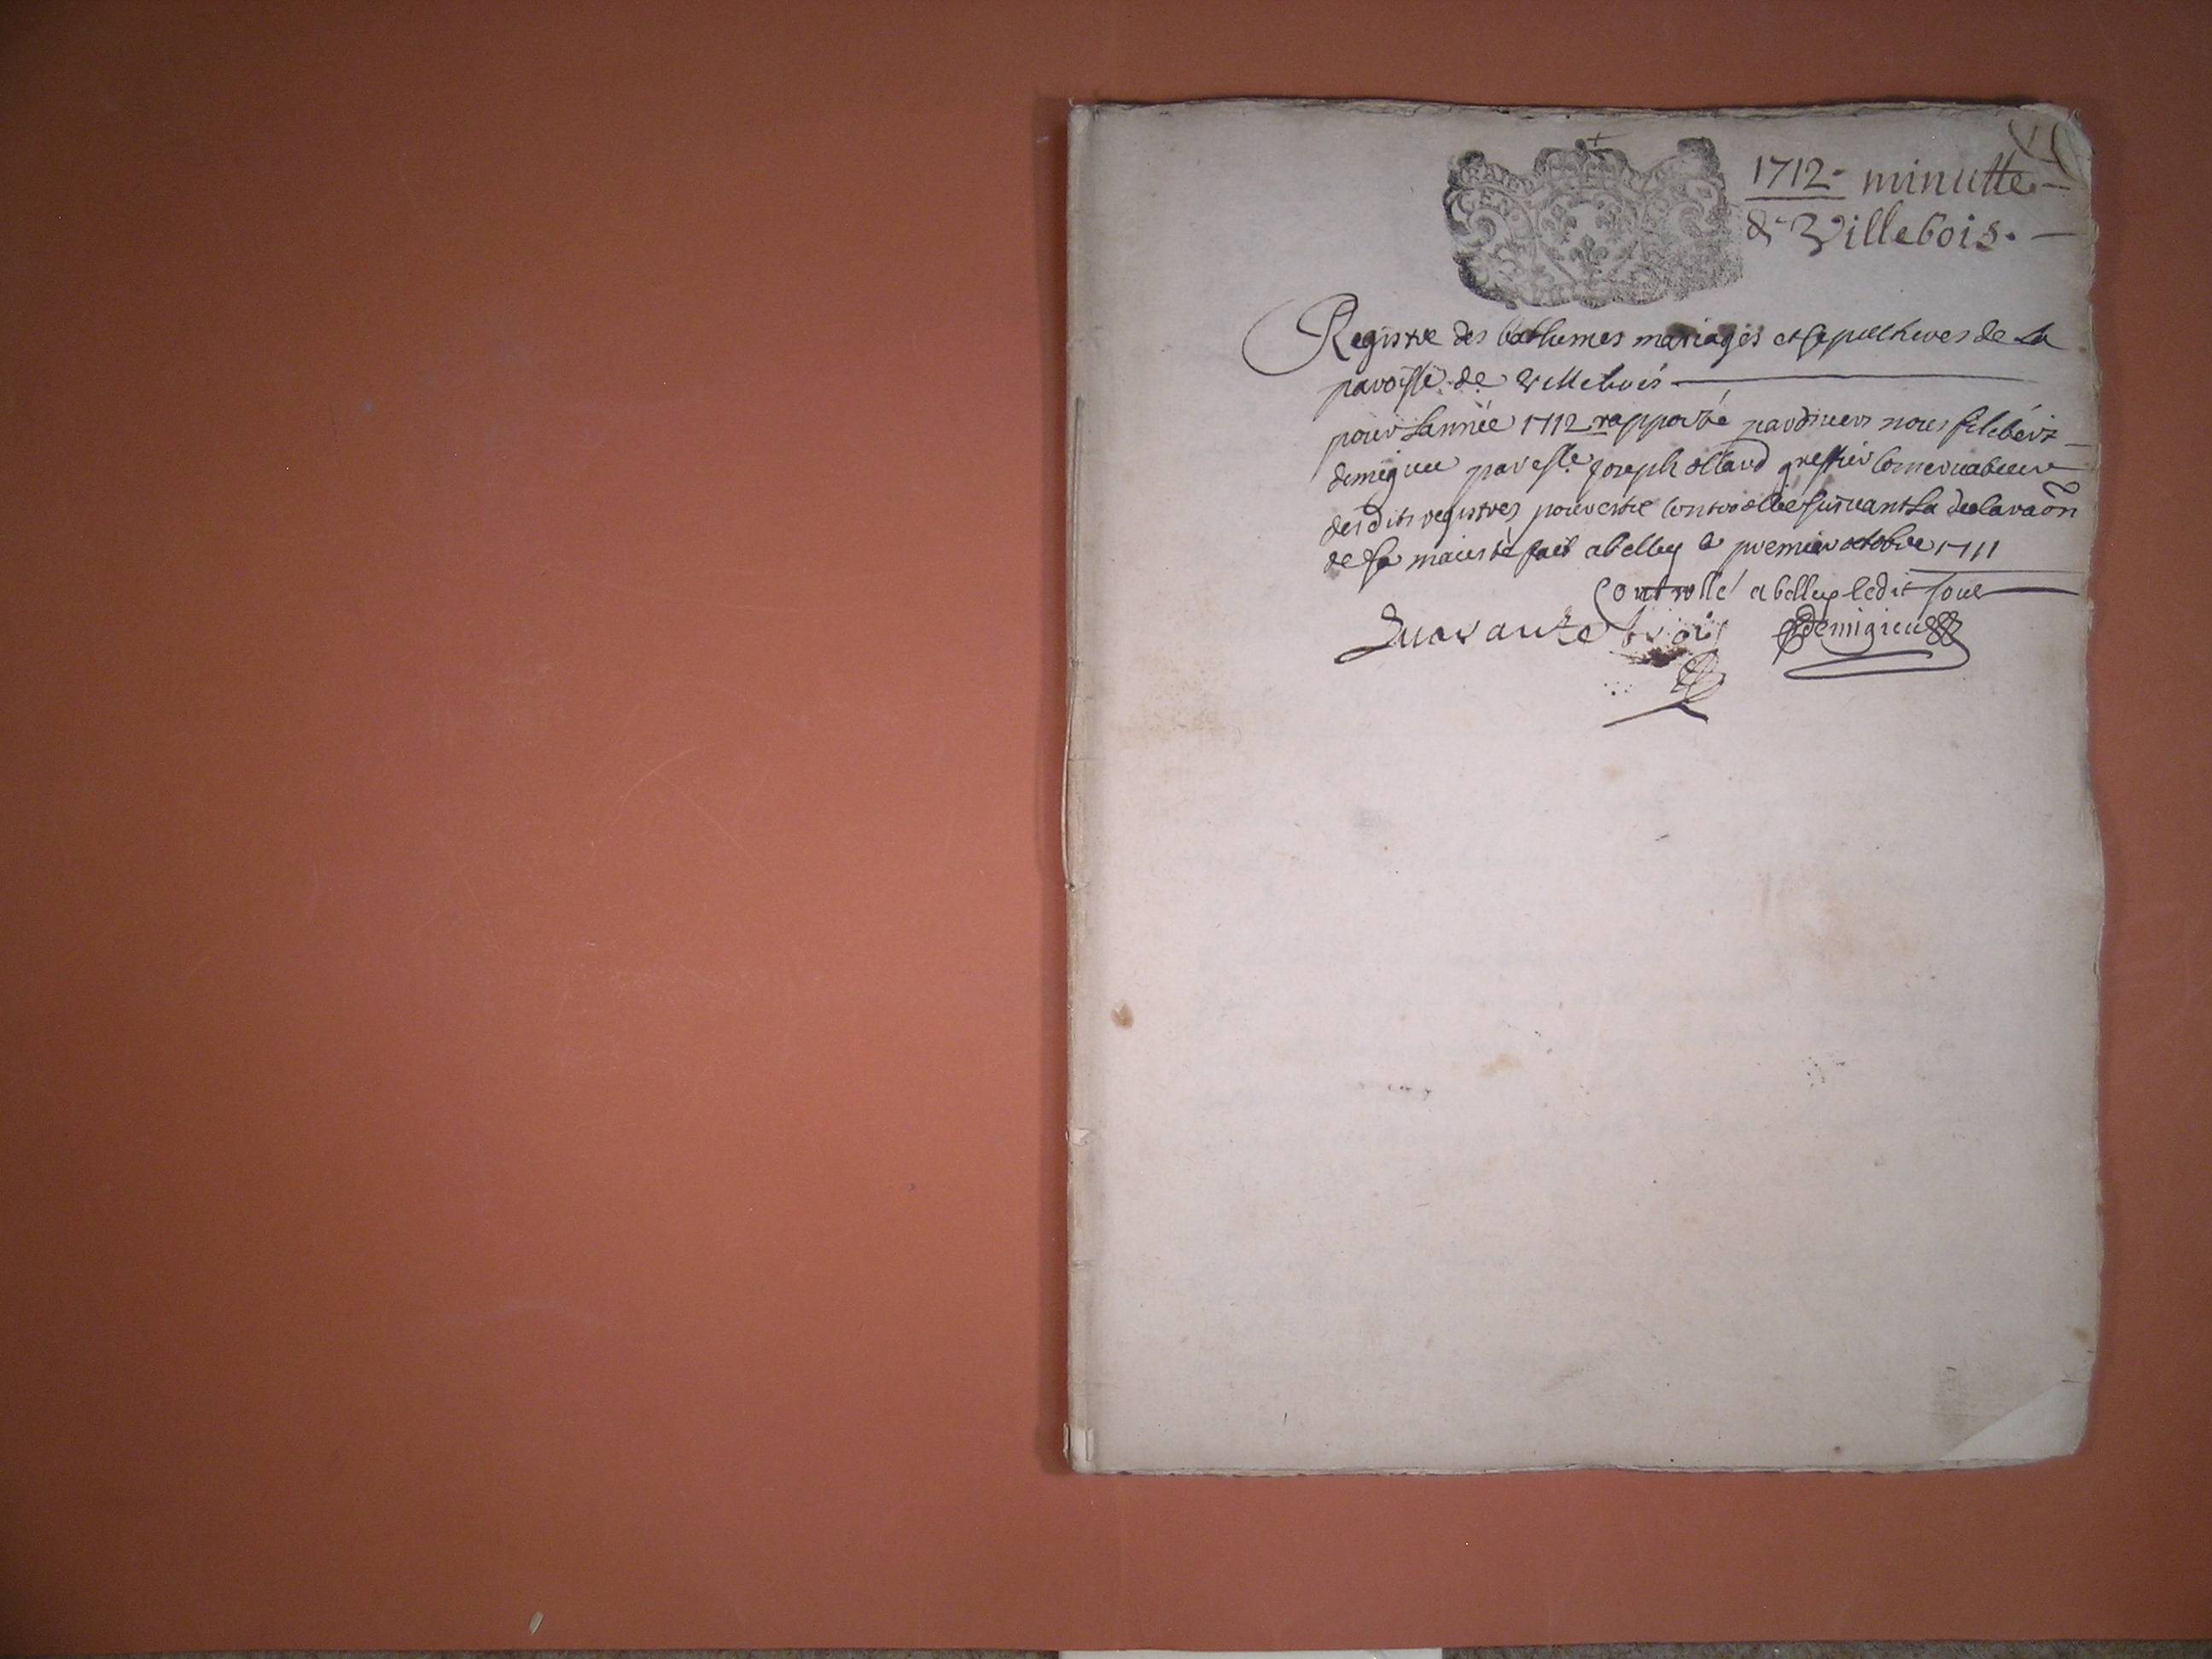 1712 - minutte -
de Villebois. -
Registre des battumes mariages et sepultures de La
paroisse de Villebois
pour Lannée 1712 rapporté pardevers nous filibert
demigieu par Joseph greffier Conservateur
desdits registres pour estre Controllé suivant La declaraon
de sa majesté fait a belley le premier octobre 1711
Controllé a belley ledit Jour
Quarante trois demigieu